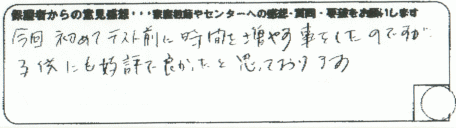 保護者からの意見感想・・・家庭教師やセンターへの感想・質問・要望をお願いします
今回 初めてテスト前に時間を増やす事をしたのですが
子供にも好評で良かったと思っております